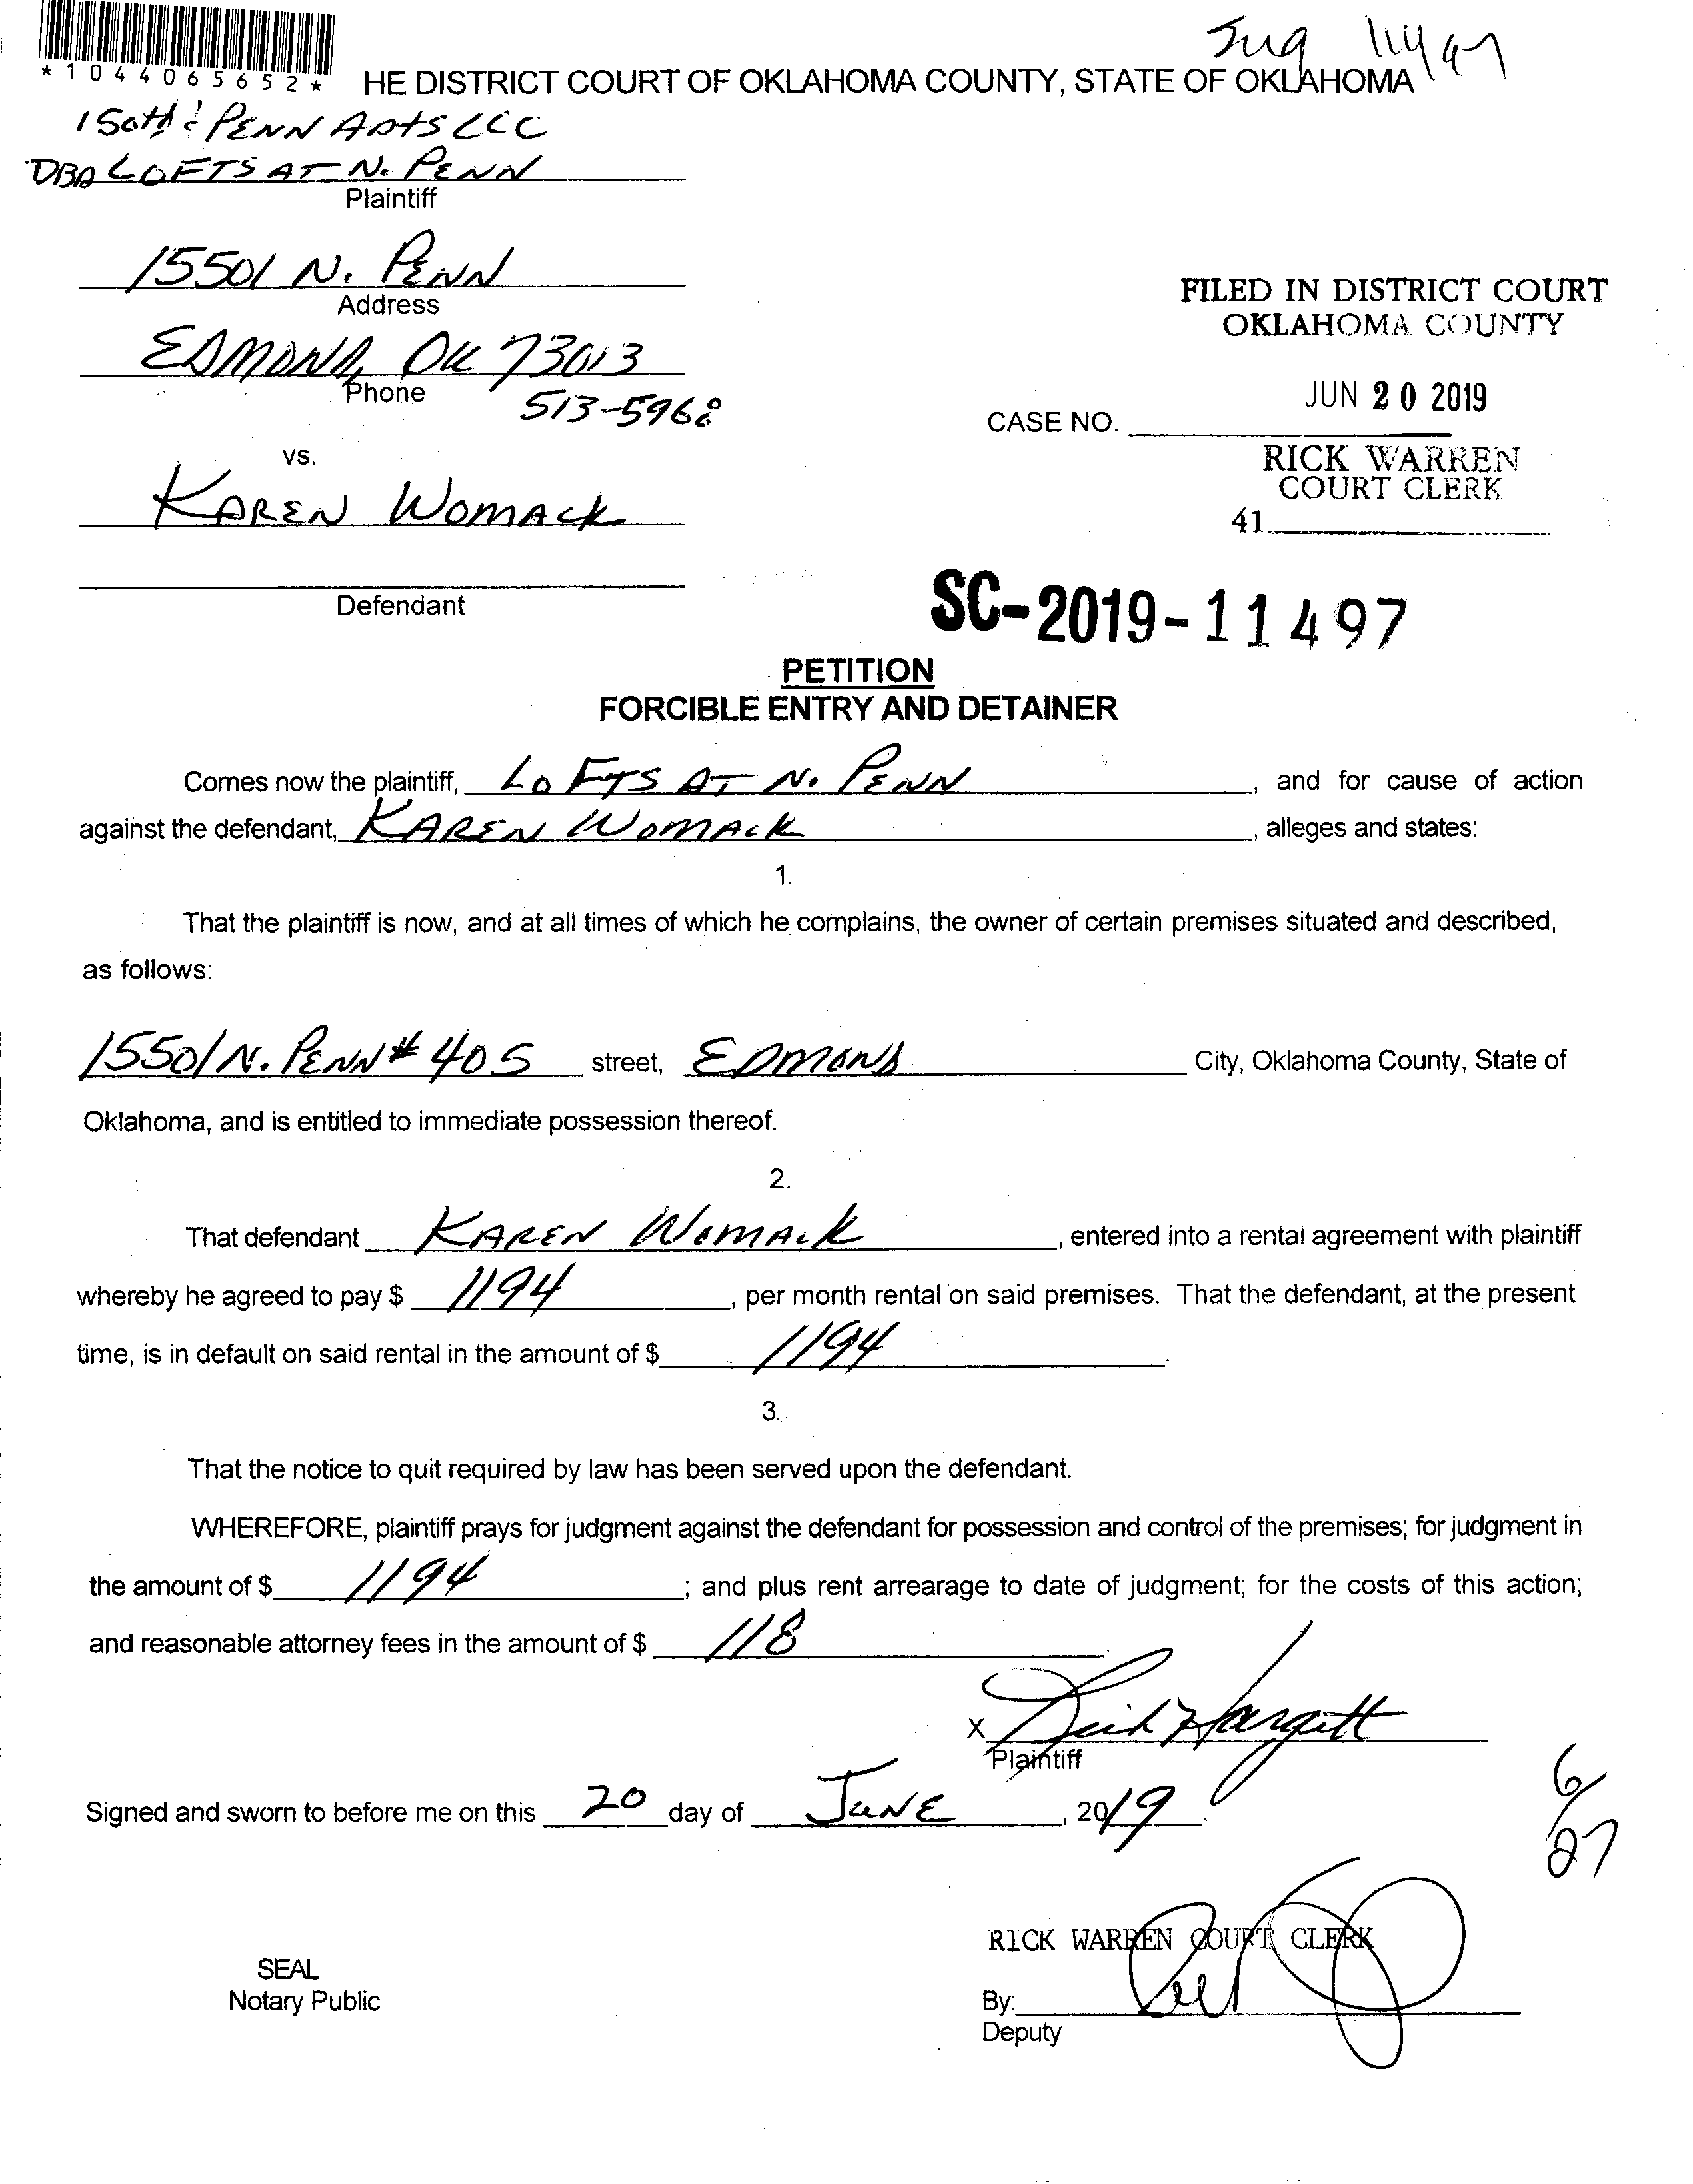 *1044065652*
HE DISTRICT COURT OF OKLAHOMA COUNTY, STATE OF OKLAHOMA
150th & PENN APTS LLC
DBA LOFTS AT N. PENN
Plaintiff
15501 N. PENN
Address
FILED IN DISTRICT COURT
OKLAHOMA COUNTY
EDMOND, OK 73013
Phone
513-5968
JUN 20 2019
CASE NO.
vs.
RICK WARREN
COURT CLERK
KAREN WOMACK
41
Defendant
SC-2019-11497
PETITION
FORCIBLE ENTRY AND DETAINER
Comes now the plaintiff, LOFTS AT N. PENN, and for cause of action
against the defendant, KAREN WOMACK, alleges and states:
1.
That the plaintiff is now, and at all times of which he complains, the owner of certain premises situated and described,
as follows:
15501 N. PENN # 405 street, EDMOND City, Oklahoma County, State of
Oklahoma, and is entitled to immediate possession thereof.
2.
That defendant KAREN WOMACK, entered into a rental agreement with plaintiff
whereby he agreed to pay $ 1194, per month rental on said premises. That the defendant, at the present
time, is in default on said rental in the amount of $ 1194.
3.
That the notice to quit required by law has been served upon the defendant.
WHEREFORE, plaintiff prays for judgment against the defendant for possession and control of the premises; for judgment in
the amount of $ 1194; and plus rent arrearage to date of judgment; for the costs of this action;
and reasonable attorney fees in the amount of $ 118
X Hargett
Plaintiff
Signed and sworn to before me on this 20 day of JUNE, 2019.
6/27
RICK WARREN COURT CLERK
SEAL
Notary Public
By:
Deputy